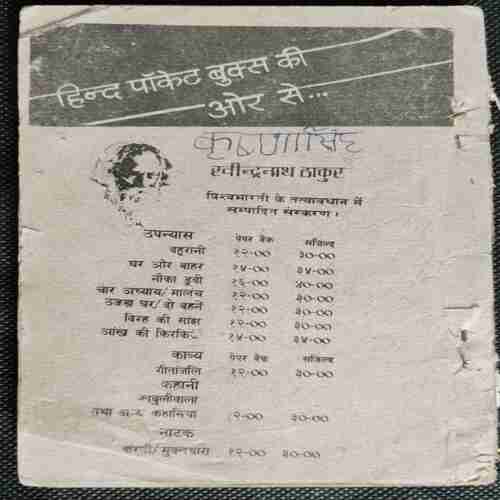 हिन्द पॉकेट बुक्स की
ओर से...
कृष्णासिंह
रवीन्द्रनाथ ठाकुर
विश्वभारती के तत्वावधान में
सम्पादित संस्करण।
उपन्यास पेपर बैक सजिल्द
बहूरानी १२-०० ३०-००
घर और बाहर १४-०० ३४-००
नौका डूबी १६-०० ४०-००
चार अध्याय/मालंच १२-०० ३०-००
उजड़ा घर/दो बहनें १२-०० ३०-००
विरह की सांझ १२-०० ३०-००
आंख की १४-०० ३४-००
काव्य पेपर बैक सजिल्द
गीतांजलि १२-०० ३०-००
कहानी
काबुलीवाला
तथा अन्य कहानियां १२-०० ३०-००
नाटक
१२-०० ३०-००